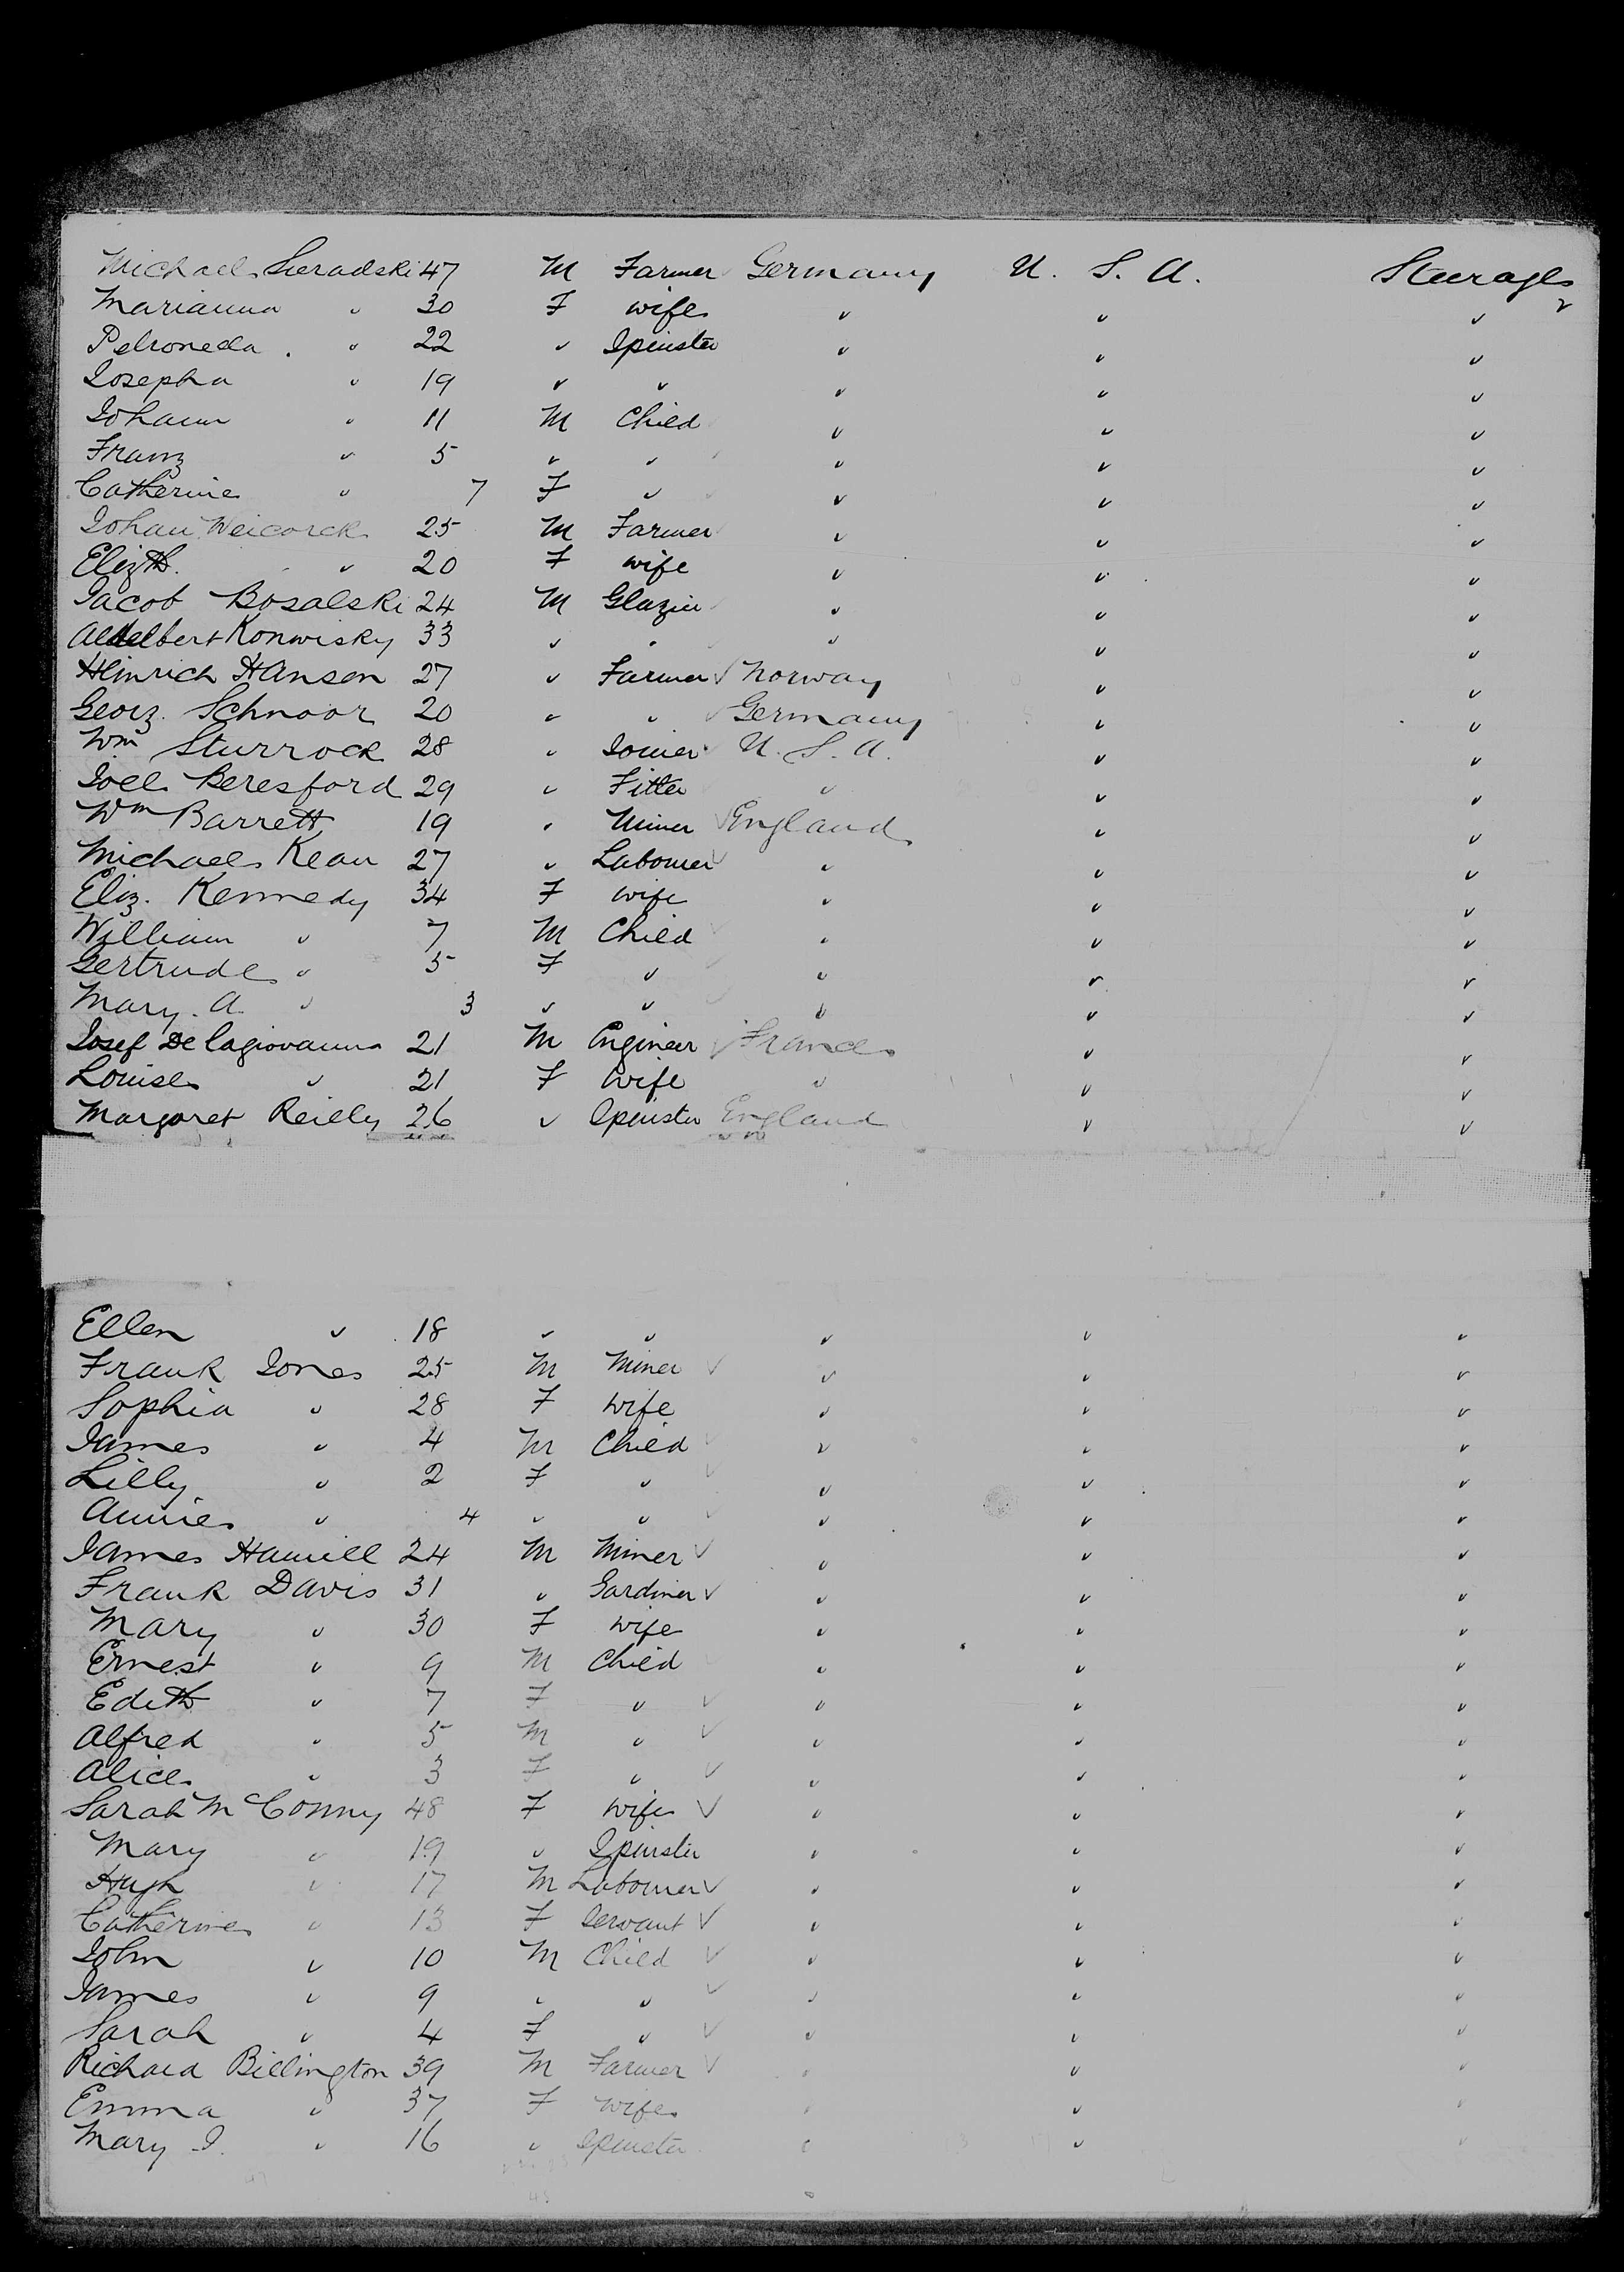 Michael Sieradski 47 M Farmer Germany U. S. A. Steerage
Marianna " 30 F wife " " "
Petronella " 22 " Spinster " " "
Josepha " 19 " " " " "
Johann " 11 M Child " " "
Franz " 5 " " " " "
Catherine " 7 F " " " "
Johan Weicorck 25 M Farmer " " "
Elizth. " 20 F wife " " "
Jacob Bosalski 24 M Glazier " " "
Adelbert Konwisky 33 " " " " "
Heinrich Hansen 27 " Farmer Norway " "
Georg. Schnoor 20 " " Germany " "
Wm Sturrock 28 " Joiner U. S. A. " "
Joel Beresford 29 " Fitter " " "
Wm Barrett 19 " Miner England " "
Michael Kean 27 " Labourer " " "
Eliz. Kennedy 34 F wife " " "
William " 7 M Child " " "
Gertrude " 5 F " " " "
Mary. A. " 3 " " " " "
Josef De lagiovanna 21 M Engineer France " "
Louise " 21 F wife " " "
Margaret Reilly 26 " Spinster England " "
Ellen " 18 " " " " "
Frank Jones 25 M Miner " " "
Sophia " 28 F wife " " "
James " 4 M Child " " "
Lilly " 2 F " " " "
Annie " 4 " " " " "
James Hamill 24 M Miner " " "
Frank Davis 31 " Gardiner " " "
Mary " 30 F wife " " "
Ernest " 9 M Child " " "
Edith " 7 F " " " "
Alfred " 5 M " " " "
Alice " 3 F " " " "
Sarah McConny 48 F wife " " "
Mary " 19 " Spinster " " "
Hugh " 17 M Labourer " " "
Catherine " 13 F Servant " " "
John " 10 M Child " " "
James " 9 " " " " "
Sarah " 4 F " " " "
Richard Billington 39 M Farmer " " "
Emma " 37 F wife " " "
Mary J. " 16 " Spinster " " "